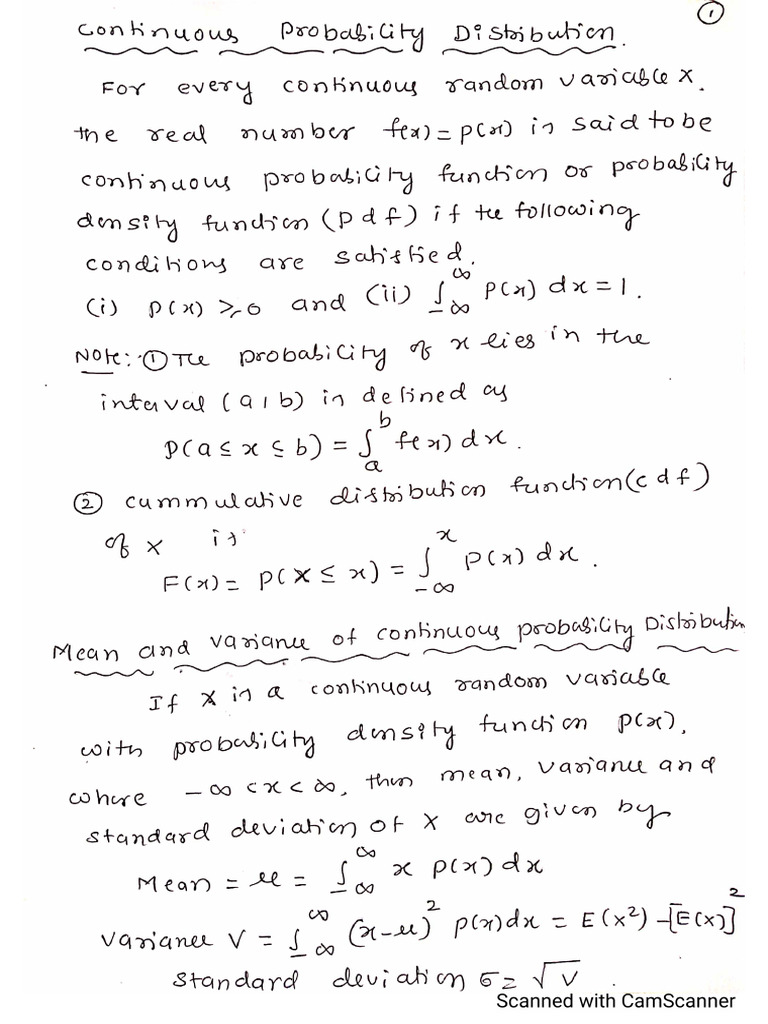 1
Continuous Probability Distribution.
For every continuous random variable X.
the real number f(x) = p(x) is said to be
continuous probability function or probability
density function (pdf) if the following
conditions are satisfied.
(i) p(x) ≥ 0 and (ii) ∫_{-∞}^{∞} P(x) dx = 1.
Note: ① The probability of x lies in the
interval (a, b) is defined as
P(a ≤ x ≤ b) = ∫_a^b f(x) dx.
② cummulative distribution function (cdf)
of X is
F(x) = P(X ≤ x) = ∫_{-∞}^{x} P(x) dx.
Mean and variance of continuous probability Distribution
If X is a continuous random variable
with probability density function p(x),
where -∞ < x < ∞, then mean, variance and
standard deviation of X are given by
Mean = μ = ∫_{-∞}^{∞} x p(x) dx
Variance V = ∫_{-∞}^{∞} (x-μ)² p(x) dx = E(x²) - [E(x)]²
Standard deviation σ = √V
Scanned with CamScanner